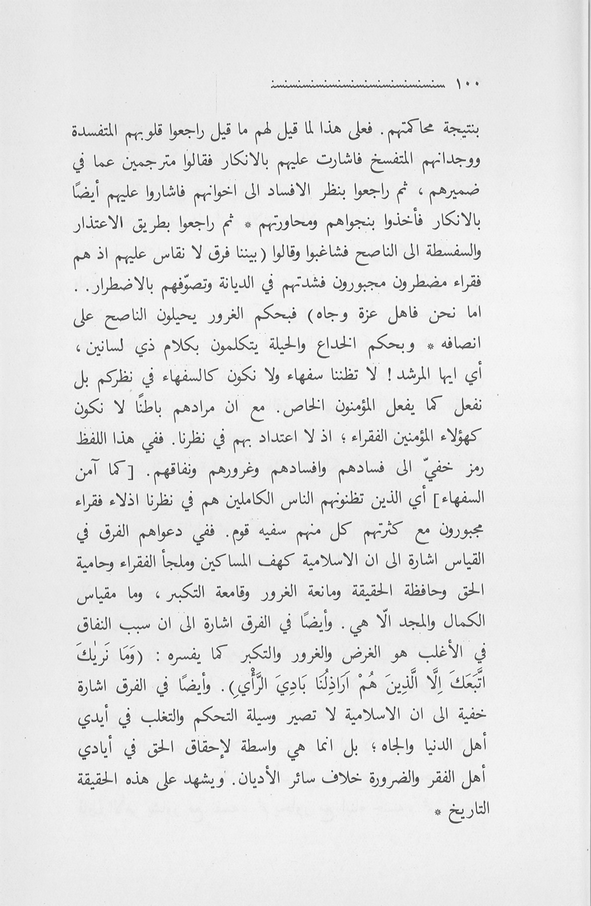 ١٠٠
بنتيجة محاكمتهم. فعلى هذا لما قيل لهم ما قيل راجعوا قلوبهم المتفسدة
ووجدانهم المتفسخ فاشارت عليهم بالانكار فقالوا مترجمين عما في
ضميرهم ، ثم راجعوا بنظر الافساد الى اخوانهم فاشاروا عليهم أيضًا
بالانكار فأخذوا بنجواهم ومحاورتهم * ثم راجعوا بطريق الاعتذار
والسفسطة الى الناصح فشاغبوا وقالوا (بيننا فرق لا نقاس عليهم اذ هم
فقراء مضطرون مجبورون فشدتهم في الديانة وتصوّفهم بالاضطرار. .
اما نحن فاهل عزة وجاه) فبحكم الغرور يحيلون الناصح على
انصافه * وبحكم الخداع والحيلة يتكلمون بكلام ذي لسانين ،
أي ايها المرشد! لا تظننا سفهاء ولا نكون كالسفهاء في نظركم بل
نفعل كما يفعل المؤمنون الخاص. مع ان مرادهم باطنًا لا نكون
كهؤلاء المؤمنين الفقراء ؛ اذ لا اعتداد بهم في نظرنا. ففي هذا اللفظ
رمز خفيّ الى فسادهم وافسادهم وغرورهم ونفاقهم. [كما آمن
السفهاء] أي الذين تظنونهم الناس الكاملين هم في نظرنا اذلاء فقراء
مجبورون مع كثرتهم كل منهم سفيه قوم. ففي دعواهم الفرق في
القياس اشارة الى ان الاسلامية كهف المساكين وملجأ الفقراء وحامية
الحق وحافظة الحقيقة ومانعة الغرور وقامعة التكبر ، وما مقياس
الكمال والمجد الّا هي. وأيضًا في الفرق اشارة الى ان سبب النفاق
في الأغلب هو الغرض والغرور والتكبر كما يفسره : (وَمَا نَرٰيكَ
اتَّبَعَكَ اِلَّا الَّذِينَ هُمْ اَرَاذِلُنَا بَادِيَ الرَّأْيِ). وأيضًا في الفرق اشارة
خفية الى ان الاسلامية لا تصير وسيلة التحكم والتغلب في أيدي
أهل الدنيا والجاه ؛ بل انما هي واسطة لإحقاق الحق في أيادي
أهل الفقر والضرورة خلاف سائر الأديان. ويشهد على هذه الحقيقة
التاريخ *